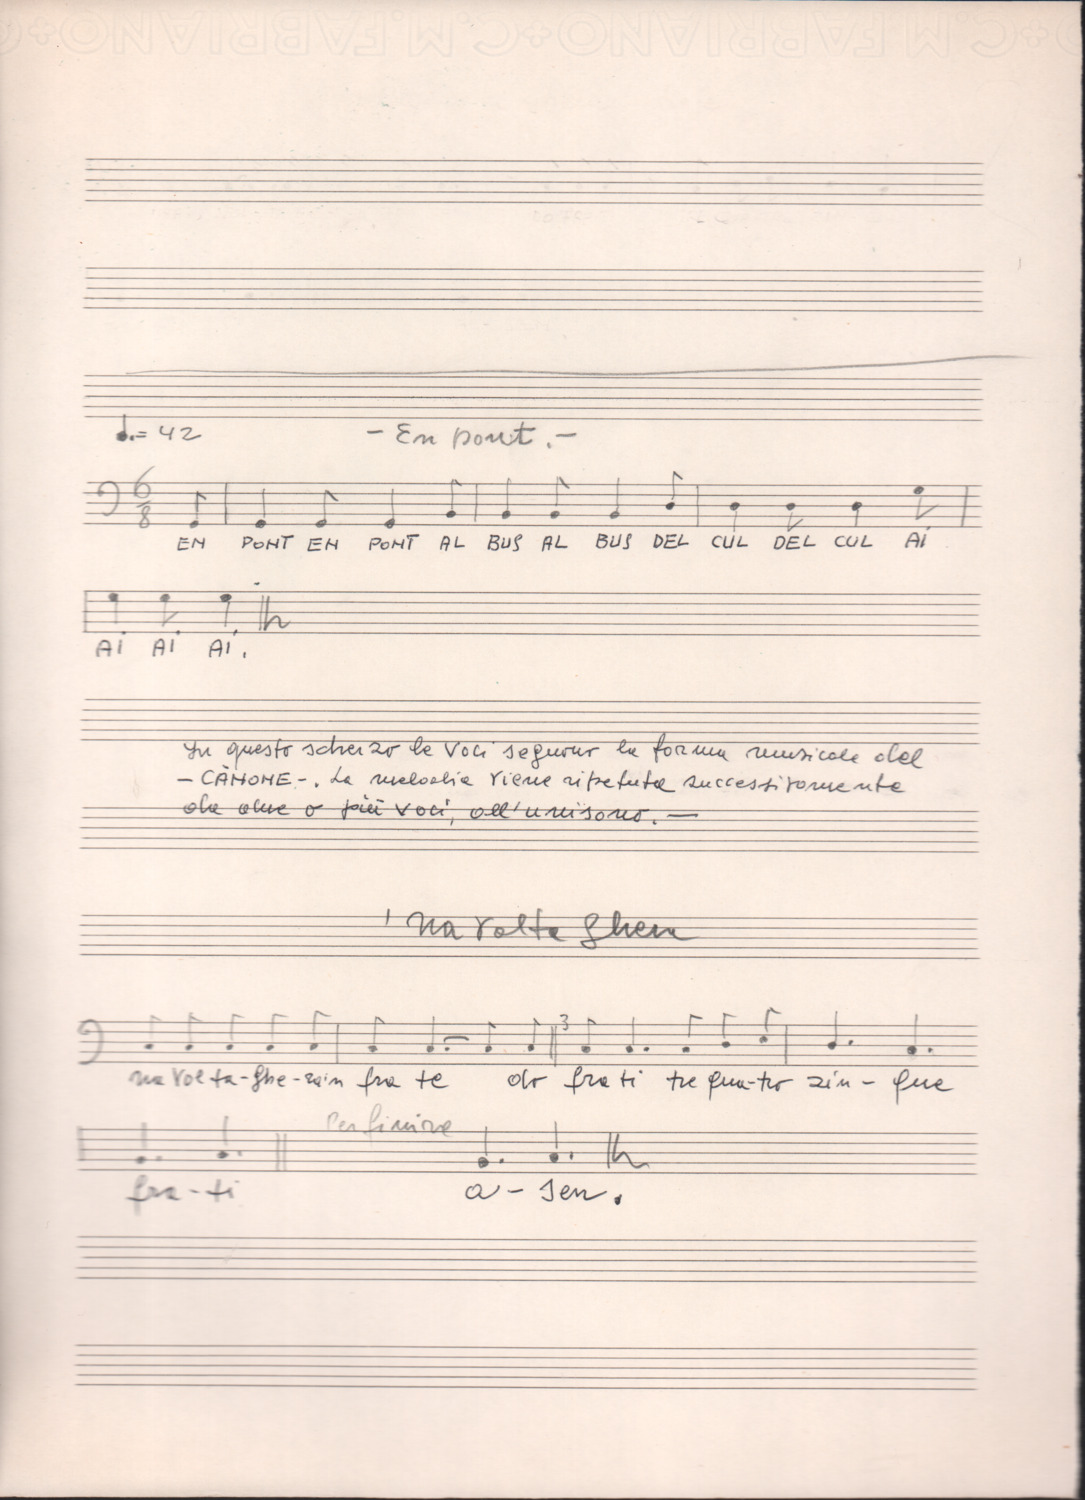 C.M. FABRIANO + C.M. FABRIANO
= 42
- En pont. -
6
8
EN PONT EN PONT AL BUS AL BUS DEL CUL DEL CUL AI
AI AI AI.
In questo scherzo le voci seguono la forma musicale del
- CANONE -. La melodia viene ripetuta successivamente
da due o più voci, all'unisono. —
'Na volta ghera
3
na vol ta-ghe-rain fra te do frati tre qua-tro zin-que
Per finire
fra-ti a-sen.